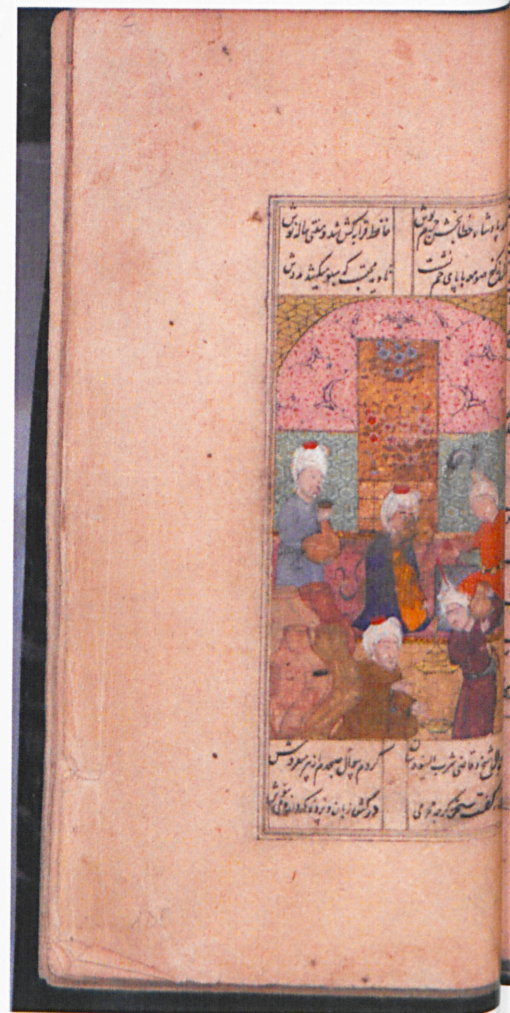 پادشاه خطابخش جرم پوش حافظ قرابه کش شد و مفتی پیاله نوش
کنج صومعه با پای خم نشست تا دید محتسب که سبو میکشد بدوش
شیخ و قاضی و شرب الیهودشان کردم سؤال صبحدم از پیر میفروش
گفتنیست سخن گرچه محرمی درکش زبان و پرده نگه دار و می بنوش